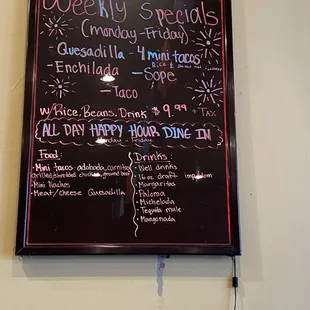 Weekly Specials
(monday-Friday)
-Quesadilla - 4 mini tacos
Rice &
-Enchilada - Sope
-Taco
w/Rice, Beans, Drink $9.99 + TAX
ALL DAY HAPPY HOUR DINE IN
Monday - Friday
Food:
-Mini tacos adobada, carnitas,
grilled/shredded chicken, ground beef
-Mini Nachos
-Meat/cheese Quesadilla
Drinks:
-Well drinks
-16oz draft
-Margaritas
-Paloma
-Michelada
-Tequila mule
-Mangonada